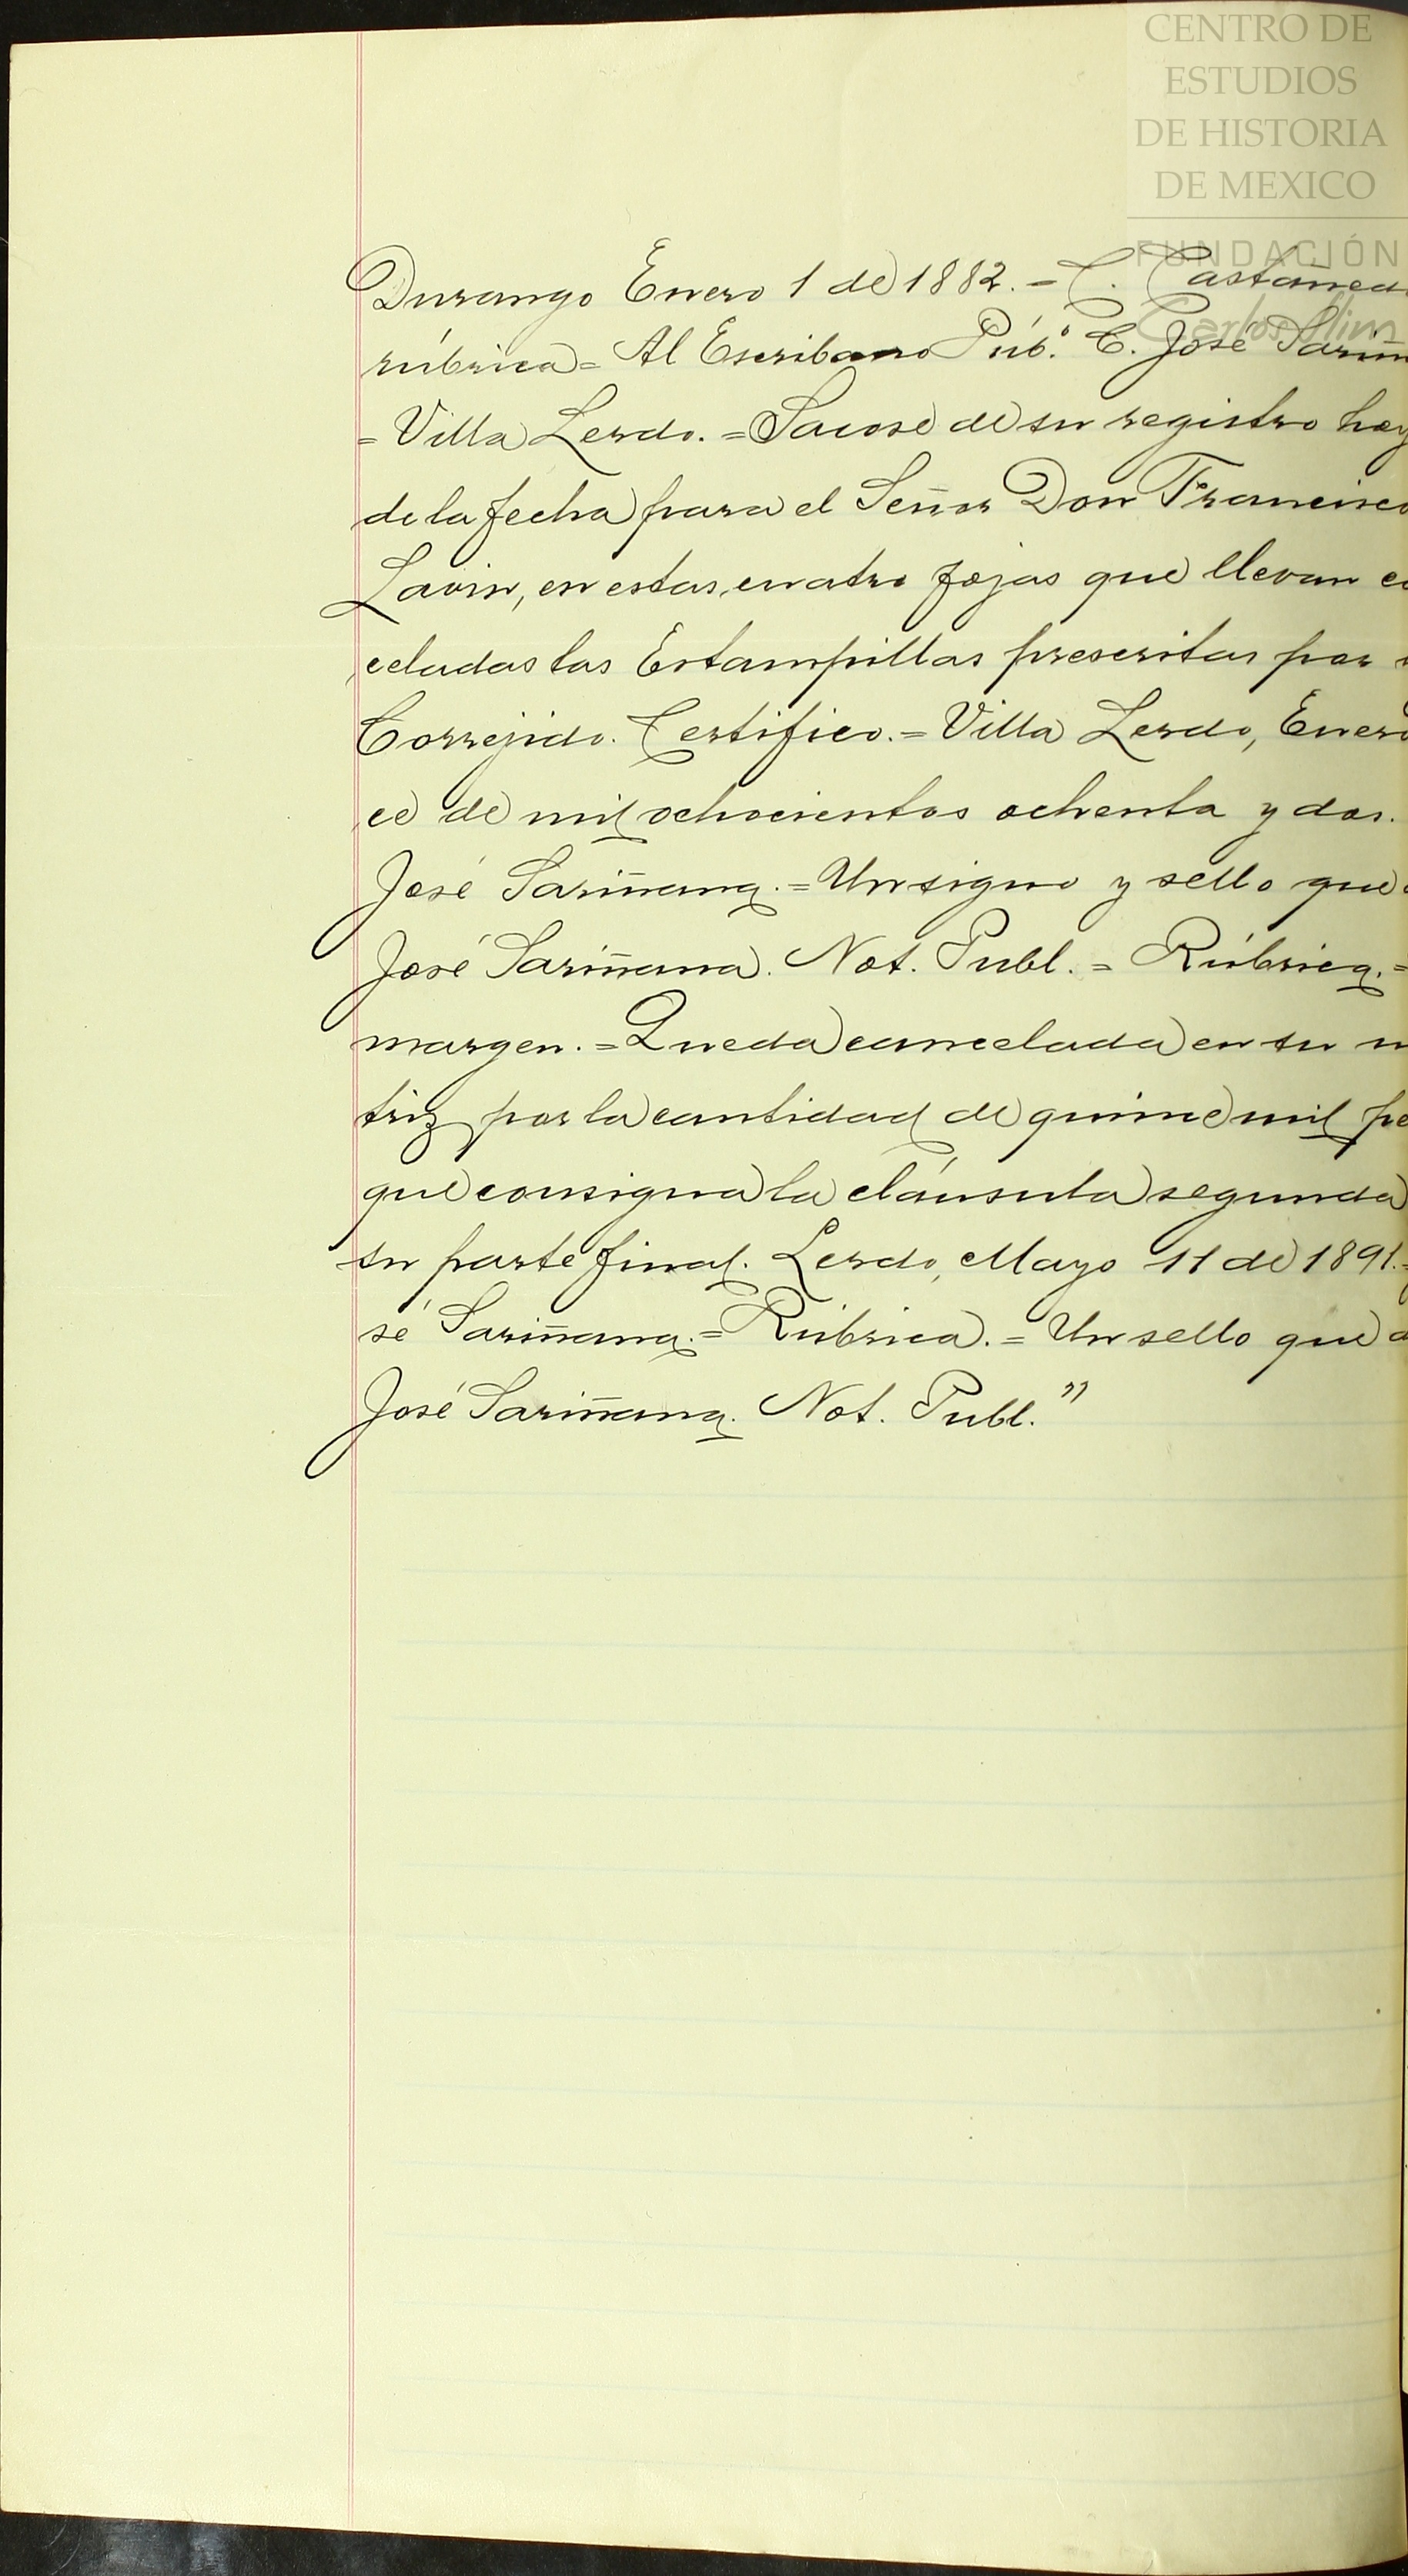 CENTRO DE
ESTUDIOS
DE HISTORIA
DE MEXICO
FUNDACIÓN
Carlos Slim
Durango Enero 1 de 1882. = C. Castañeda
rúbrica = Al Escribano Púb.º C. José Sariñ
= Villa Lerdo. = Sacose de su registro hoy
de la fecha para el Señor Don Francisco
Lavin, en estas cuatro fojas que llevan
celadas las Estampillas prescritas por
Correjido. Certifico. = Villa Lerdo, Enero
ce de mil ochocientos ochenta y dos.
José Sariñana. = Un signo y sello que
José Sariñana. Not. Publ. = Rúbrica. =
margen. = Queda cancelada en su m
triz por la cantidad de quince mil pe
que consigna la cláusula segunda
su parte final. Lerdo, Mayo 11 de 1891. =
sé Sariñana. = Rúbrica. = Un sello que
José Sariñana. Not. Publ."